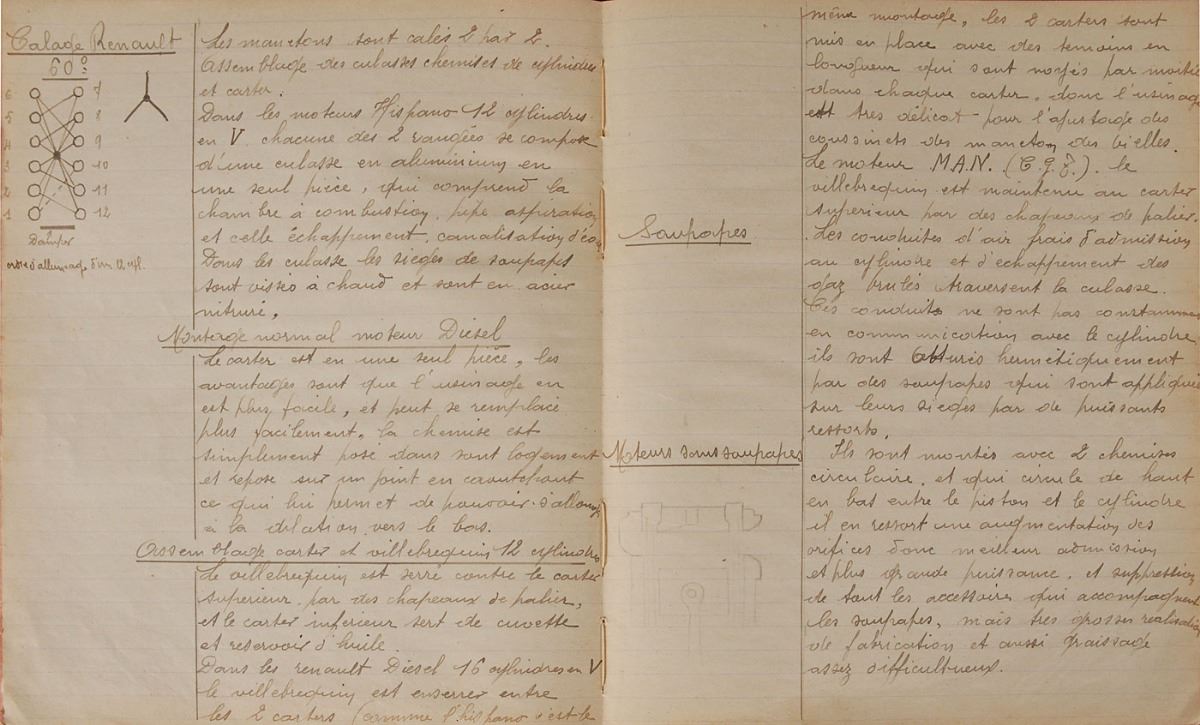 Calage Renault
60°
6 7
5 8
4 9
3 10
2 11
1 12
Damper
ordre d'allumage d'un 12 cyl.
Les manetons sont calés 2 par 2.
Assemblage des culasses chemises de cylindres
et carter.
Dans les moteurs Hispano 12 cylindres
en V chacune des 2 rangées se compose
d'une culasse en aluminium en
une seul pièce, qui comprend la
chambre à combustion, pipe aspiration
et celle échappement, canalisation d'eau
Dans les culasse les sieges de soupapes
sont vissé à chaud et sont en acier
nitruré.
Montage normal moteur Diesel
Le carter est en une seul pièce, les
avantages sont que l'usinage en
est plus facile, et peut se remplacé
plus facilement. la chemise est
simplement posé dans sont logement
et repose sur un joint en caoutchout
ce qui lui permet de pouvoir s'allonger
à la dilation vers le bas.
Assemblage carter et villebrequin 12 cylindres
Le villebrequin est serré contre le carter
superieur par des chapeaux de palier,
et le carter inférieur sert de cuvette
et reservoir d'huile.
Dans les renault Diesel 16 cylindres en V
le villebrequin est enserrer entre
les 2 carters (comme l'hispano s'est le
même montage, les 2 carters sont
mis en place avec des temoins en
longueur qui sont noyés par moitié
dans chaque carter, donc l'usinage
est très délicat pour l'ajustage des
coussinets des maneton des bielles.
Le moteur MAN. le
villebrequin est maintenu au carter
superieur par des chapeaux de palier.
Soupapes
Les conduites d'air frais d'admission
au cylindre et d'échappement des
gaz brulés traversent la culasse.
Ces conduits ne sont pas constamment
en communication avec le cylindre
ils sont obturis hermétiquement
par des soupapes qui sont appliquées
sur leurs sieges par de puissants
ressorts.
Moteurs sans soupapes
Ils sont montés avec 2 chemises
circulaire, et qui circule de haut
en bas entre le piston et le cylindre
il en ressort une augmentation des
orifices donc meilleur admission
et plus grande puissance, et suppression
de tout les accessoire qui accompagnent
les soupapes, mais très grosses réalisation
de fabrication et aussi graissage
assez difficultueux.